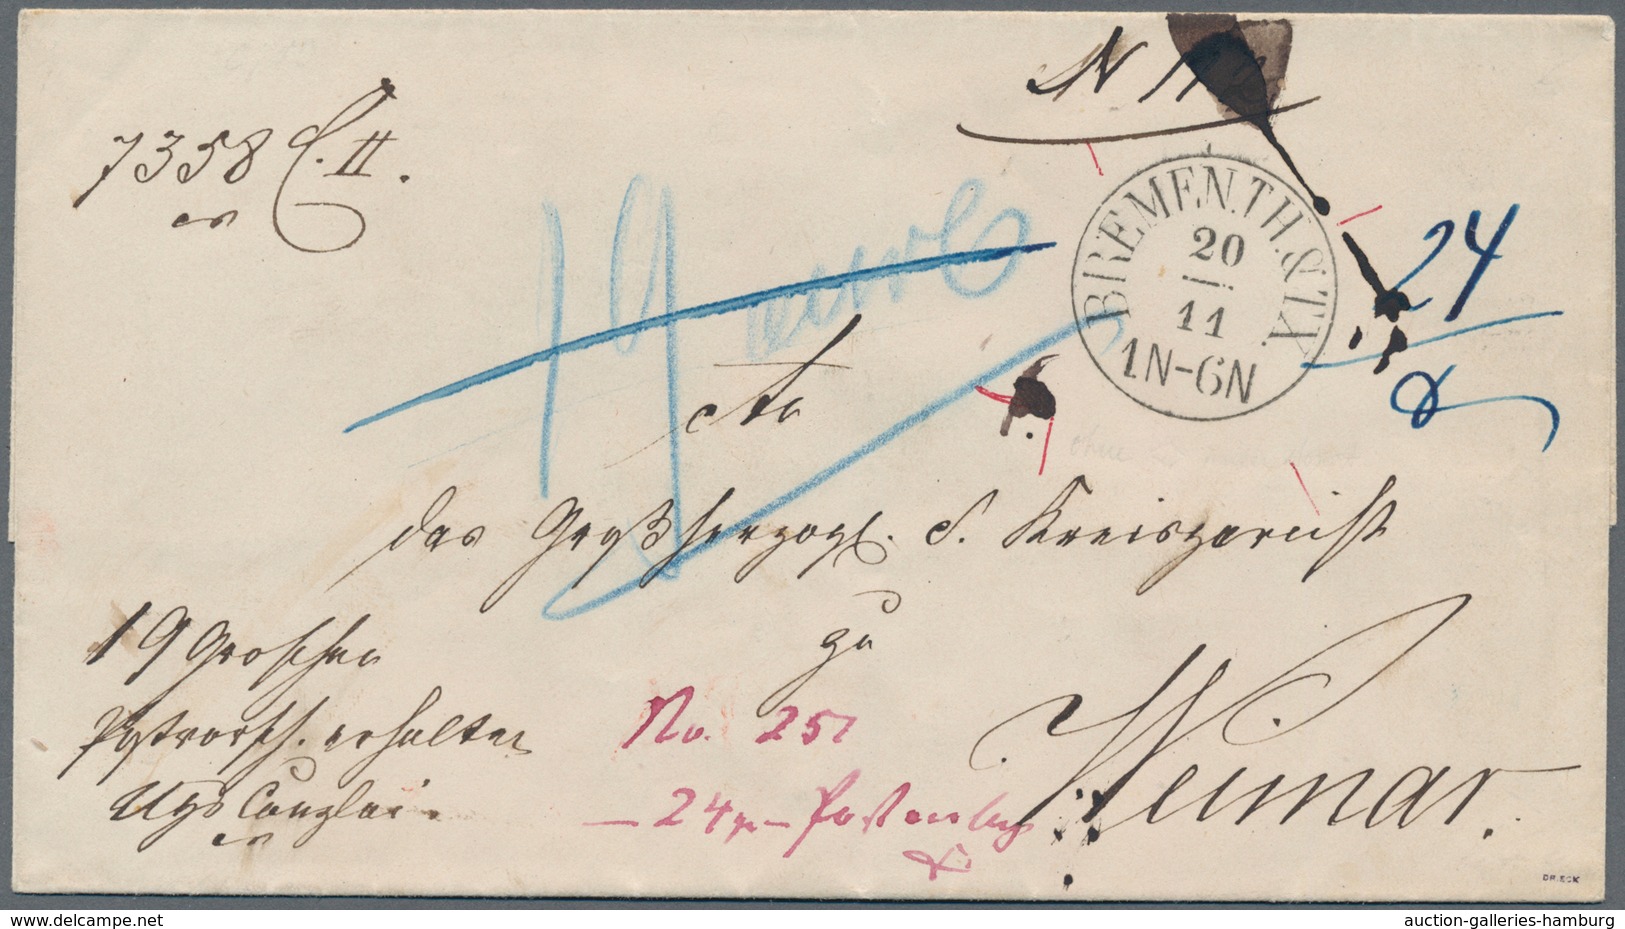 7358 C. II.
N
BREMEN. TH. & TX.
20
11
1N-6N
24
19
An
das Großherzogl. S. Kreisgericht
zu
Weimar.
19 Groschen
Postvorsch. erhalten
Canzlei.
No. 251
- 24 gr -
DR. ECK
delcampe.net
auction-galleries-hamburg